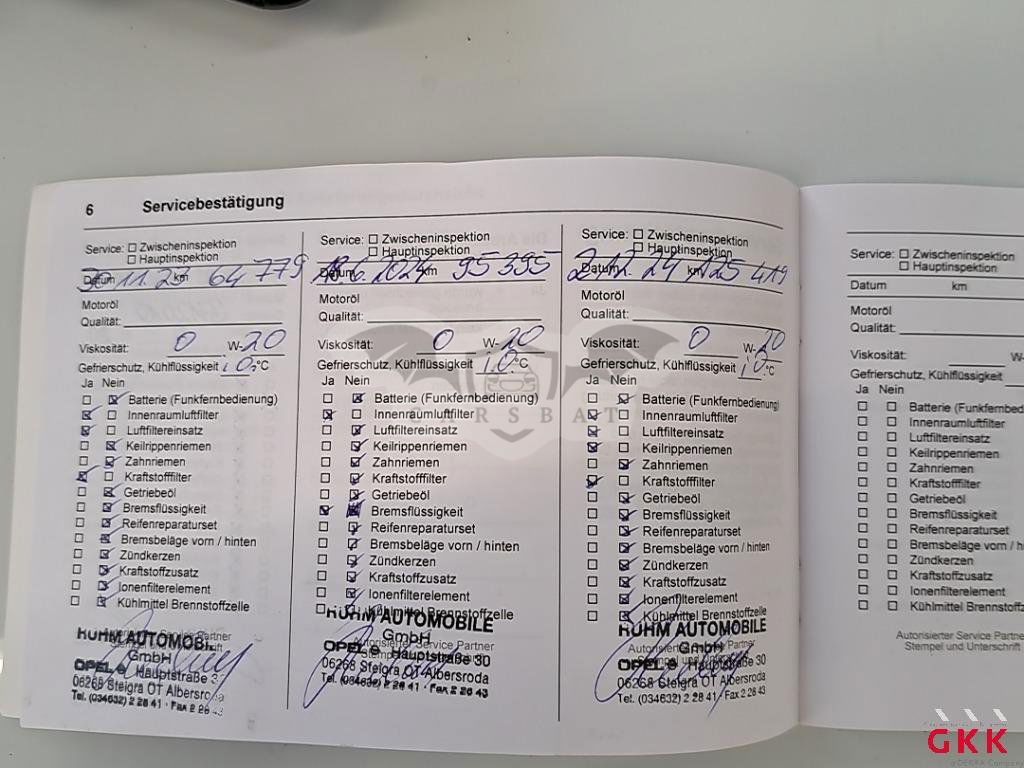 6 Servicebestätigung
Service: Zwischeninspektion
Hauptinspektion
Datum 11.23 km 64 779
Motoröl
Qualität:
Viskosität: 0 W-20
Gefrierschutz, Kühlflüssigkeit °C
Ja Nein
Batterie (Funkfernbedienung)
Innenraumluftfilter
Luftfiltereinsatz
Keilrippenriemen
Zahnriemen
Kraftstofffilter
Getriebeöl
Bremsflüssigkeit
Reifenreparaturset
Bremsbeläge vorn / hinten
Zündkerzen
Kraftstoffzusatz
Ionenfilterelement
Kühlmittel Brennstoffzelle
Service Partner
Unterschrift
GmbH
OPEL Hauptstraße
06268 Steigra OT Albersroda
Tel. (034632) 2 28 41 · Fax 2 28
Service: Zwischeninspektion
Hauptinspektion
Datum 6.2024 km 95 395
Motoröl
Qualität:
Viskosität: 0 W-20
Gefrierschutz, Kühlflüssigkeit °C
Ja Nein
Batterie (Funkfernbedienung)
Innenraumluftfilter
Luftfiltereinsatz
Keilrippenriemen
Zahnriemen
Kraftstofffilter
Getriebeöl
Bremsflüssigkeit
Reifenreparaturset
Bremsbeläge vorn / hinten
Zündkerzen
Kraftstoffzusatz
Ionenfilterelement
Kühlmittel Brennstoffzelle
AUTOMOBILE
GmbH
Autorisierter Service Partner
Stempel
OPEL Hauptstraße 30
06268 Steigra OT Albersroda
Tel. (034632) 2 28 41 · Fax 2 28 43
Service: Zwischeninspektion
Hauptinspektion
Datum 2.12.24 km 125 419
Motoröl
Qualität:
Viskosität: 0 W-20
Gefrierschutz, Kühlflüssigkeit °C
Ja Nein
Batterie (Funkfernbedienung)
Innenraumluftfilter
Luftfiltereinsatz
Keilrippenriemen
Zahnriemen
Kraftstofffilter
Getriebeöl
Bremsflüssigkeit
Reifenreparaturset
Bremsbeläge vorn / hinten
Zündkerzen
Kraftstoffzusatz
Ionenfilterelement
Kühlmittel Brennstoffzelle
AUTOMOBILE
GmbH
Autorisierter Service Partner
OPEL Hauptstraße 30
06268 Steigra OT Albersroda
Tel. (034632) 2 28 41 · Fax 2 28 43
Service: Zwischeninspektion
Hauptinspektion
Datum km
Motoröl
Qualität:
Viskosität: W-
Gefrierschutz, Kühlflüssigkeit
Ja Nein
Batterie (Funkfernbed
Innenraumluftfilter
Luftfiltereinsatz
Keilrippenriemen
Zahnriemen
Kraftstofffilter
Getriebeöl
Bremsflüssigkeit
Reifenreparaturset
Bremsbeläge vorn / hi
Zündkerzen
Kraftstoffzusatz
Ionenfilterelement
Kühlmittel Brennstoffz
Autorisierter Service Partne
Stempel und Unterschrift
CARSBAT
GKK
a DEKRA Company